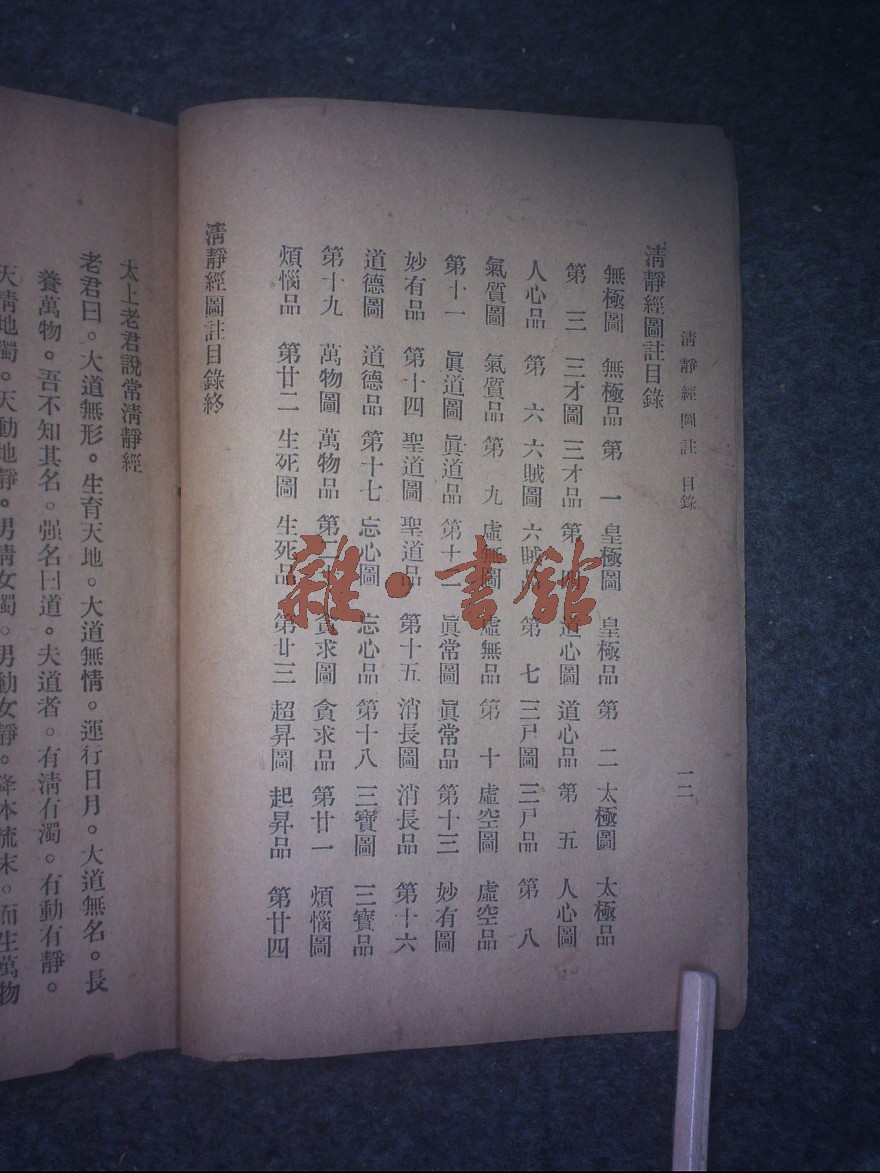 清靜經圖註 目錄
一二
清靜經圖註目錄
無極圖 無極品 第一 皇極圖 皇極品 第二 太極圖 太極品
第三 三才圖 三才品 第四 道心圖 道心品 第五 人心圖
人心品 第六 六賊圖 六賊品 第七 三尸圖 三尸品 第八
氣質圖 氣質品 第九 虛無圖 虛無品 第十 虛空圖 虛空品
第十一 眞道圖 眞道品 第十二 眞常圖 眞常品 第十三 妙有圖
妙有品 第十四 聖道圖 聖道品 第十五 消長圖 消長品 第十六
道德圖 道德品 第十七 忘心圖 忘心品 第十八 三寶圖 三寶品
第十九 萬物圖 萬物品 第二十 貪求圖 貪求品 第廿一 煩惱圖
煩惱品 第廿二 生死圖 生死品 第廿三 超昇圖 起昇品 第廿四
清靜經圖註目錄終
太上老君說常清靜經
老君曰。大道無形。生育天地。大道無情。運行日月。大道無名。長
養萬物。吾不知其名。强名曰道。夫道者。有清有濁。有動有靜。
天清地濁。天動地靜。男清女濁。男動女靜。降本流末。而生萬物
雜·書館